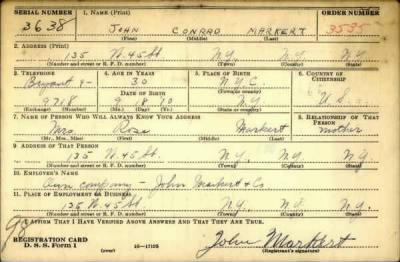 SERIAL NUMBER 1. NAME (Print) ORDER NUMBER
3638 JOHN CONRAD MARKERT 3535
(First) (Middle) (Last)
2. ADDRESS (Print)
135 W. 45 St N.Y. N.Y. N.Y.
(Number and street or R. F. D. number) (Town) (County) (State)
3. TELEPHONE 4. AGE IN YEARS 5. PLACE OF BIRTH 6. COUNTRY OF CITIZENSHIP
Bryant 9- 30 N.Y.C.
DATE OF BIRTH (Town or county)
9718 9 8 10 N.Y. U.S.
(Exchange) (Number) (Mo.) (Day) (Yr.) (State or country)
7. NAME OF PERSON WHO WILL ALWAYS KNOW YOUR ADDRESS 8. RELATIONSHIP OF THAT PERSON
Mrs. Rose Markert mother
(Mr., Mrs., Miss) (First) (Middle) (Last)
9. ADDRESS OF THAT PERSON
135 W. 45 St. N.Y. N.Y. N.Y.
(Number and street or R. F. D. number) (Town) (County) (State)
10. EMPLOYER'S NAME
Own company - John Markert & Co
11. PLACE OF EMPLOYMENT OR BUSINESS
135 W. 45 St. N.Y. N.Y. N.Y.
(Number and street or R. F. D. number) (Town) (County) (State)
I AFFIRM THAT I HAVE VERIFIED ABOVE ANSWERS AND THAT THEY ARE TRUE.
REGISTRATION CARD
D. S. S. Form 1 (over) 16-17105 John Markert
(Registrant's signature)